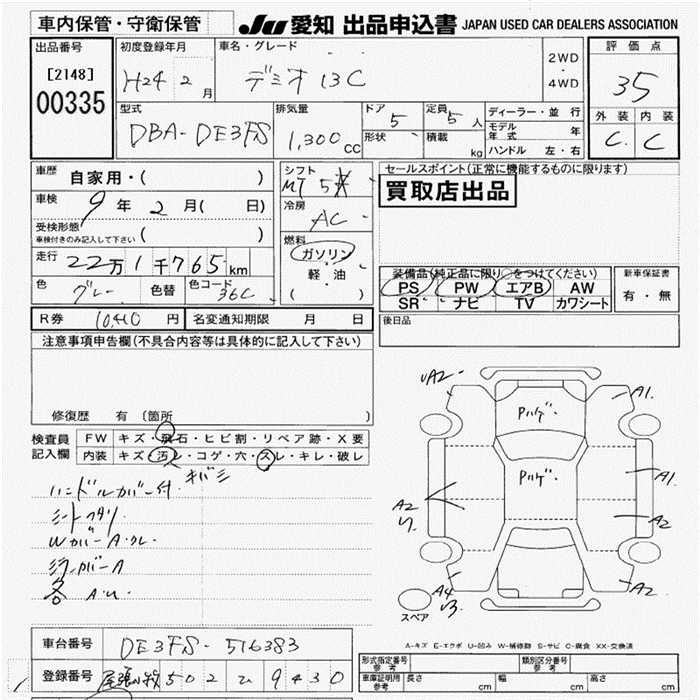 車内保管・守衛保管
JU 愛知 出品申込書 JAPAN USED CAR DEALERS ASSOCIATION
出品番号
[2148]
00335
初度登録年月
H24 2月
車名・グレード
デミオ 13C
2WD
・
4WD
評価点
35
外装 内装
C C
型式
DBA-DE3FS
排気量
1,300cc
ドア
5
形状
定員
5人
積載
kg
ディーラー・並行
モデル年式 年
ハンドル 左・右
車歴
自家用・( )
車検
9年 2月( 日)
受検形態
車検付きのみ記入して下さい ( )
走行
22万1千765km
色
グレー
色替
色コード
36C
シフト
MT 5
冷房
AC
燃料
ガソリン
軽油
( )
セールスポイント(正常に機能するものに限ります)
買取店出品
装備品(純正品に限り○をつけてください)
PS PW エアB AW
SR ナビ TV カワシート
新車保証書
有・無
後日品
R券 10,410円 名変通知期限 月 日
注意事項申告欄(不具合内容等は具体的に記入して下さい)
修復歴 有 〔箇所
検査員
記入欄
FW キズ・飛石・ヒビ割・リペア跡・X要
内装 キズ・汚レ・コゲ・穴・スレ・キレ・破レ
キバミ
ハンドルカバー付
シートヘタリ
Wカバー A・クレ
A
各 A.U
UA2
A1
Pハゲ
Pハゲ
A1
A2
A2
A4
A2
スペア
A-キズ E-エクボ U-凹み W-補修跡 S-サビ C-腐食 XX-交換済
車台番号
DE3FS-516383
登録番号
尾張小牧 502 ひ 9430
形式指定番号
参考
類別区分番号
参考
車庫証明用
参考
長さ cm
幅 cm
高さ cm